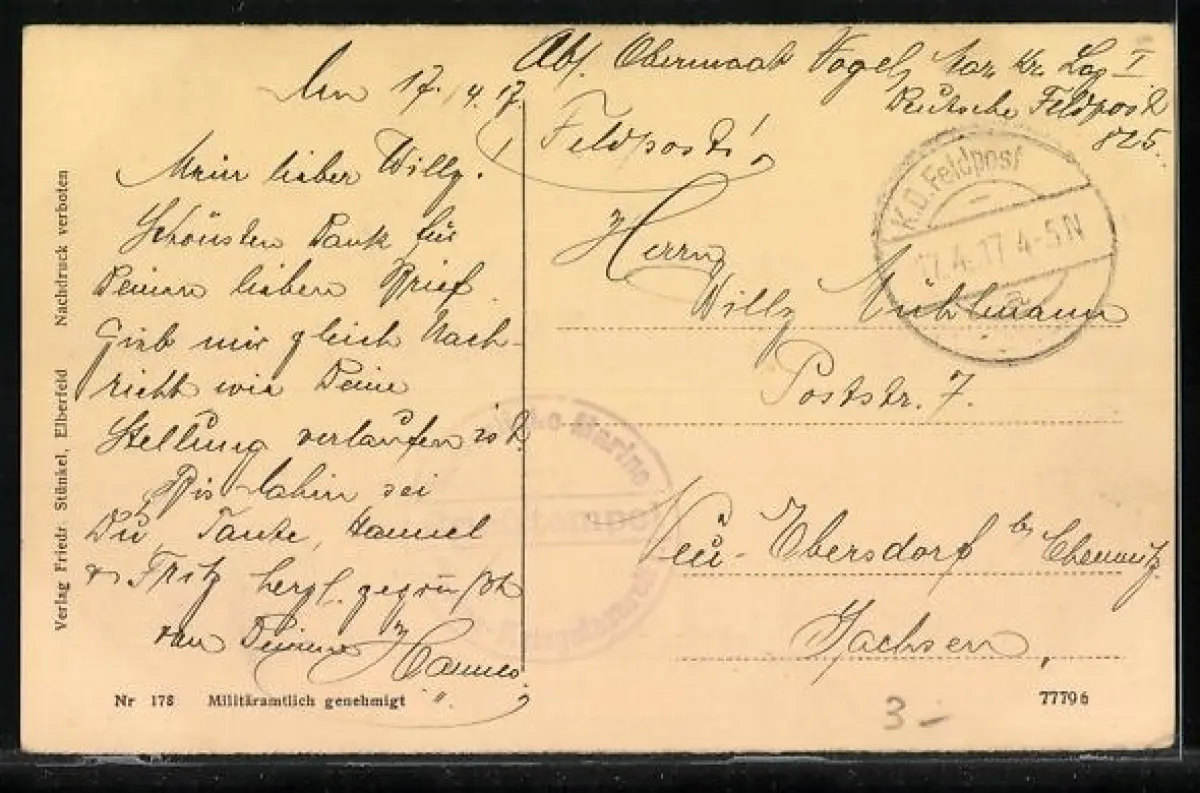 Abs. Obermaat Vogel, Mar. Kr. Laz I
Deutsche Feldpost
825.
Am 17. 4. 17.
Mein lieber Willy.
Schönsten Dank für
Deinen lieben Brief.
Gieb mir gleich Nach-
richt wie Deine
Stellung verlaufen ist.
Bis dahin sei
Du, Tante, Hannel
u Fritz herzl. gegrüßt
von Deinem
Hannes.
Feldpost!
K.D. Feldpost
17.4.17 4-5 N
Herrn
Willy Mühlmann
Poststr. 7.
Neu-Ebersdorf b. Chemnitz
Sachsen,
Marine
Briefstempel
Nachdruck verboten
Verlag Friedr. Stünkel, Elberfeld
Nr 178 Militäramtlich genehmigt
77796
3-